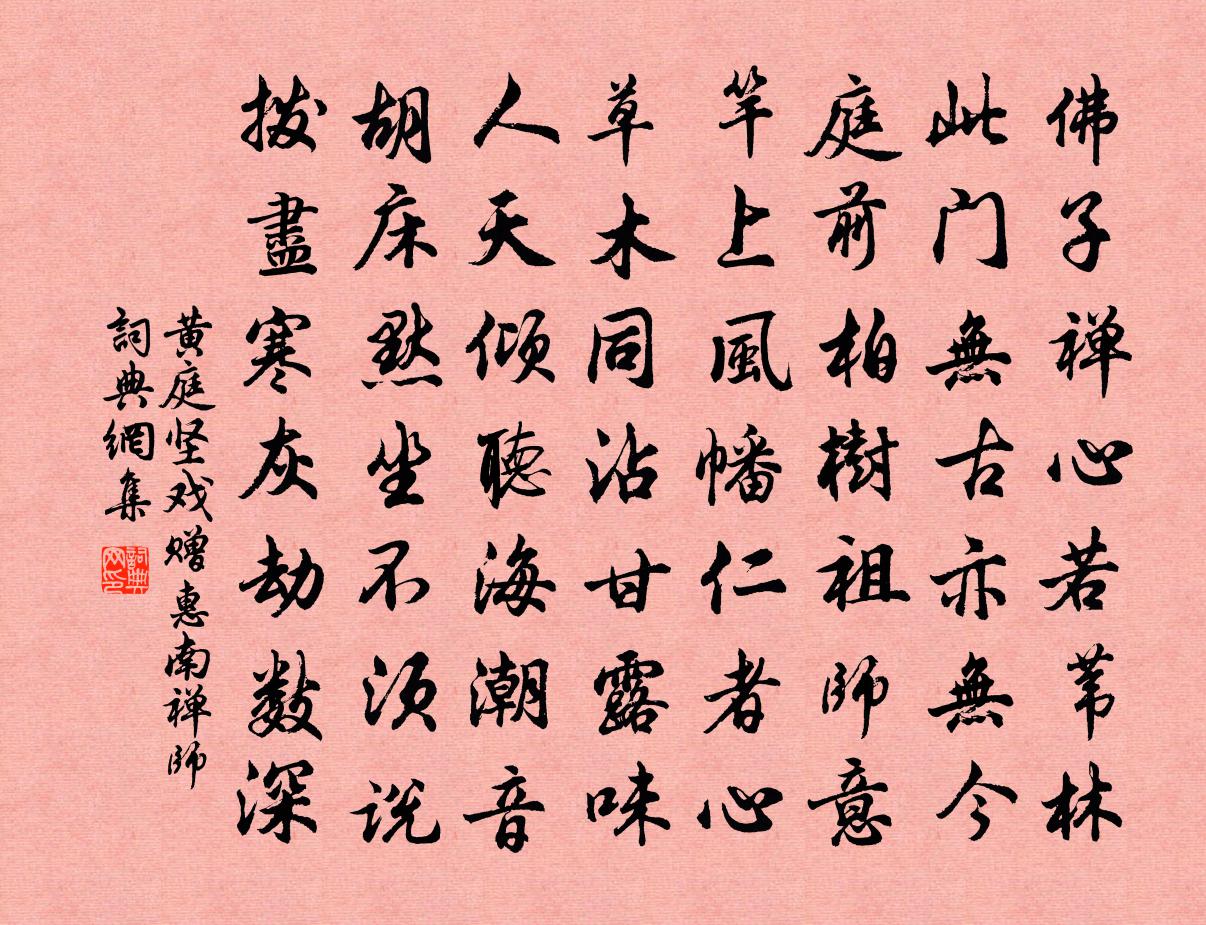 佛子禅心若苇林
此门無古亦無今
庭前柏樹祖師意
竿上風幡仁者心
草木同沾甘露味
人天倾聽海潮音
胡床默坐不须说
拨盡寒灰劫数深
黄庭坚戏赠惠南禅师
詞典網集
詞典网印